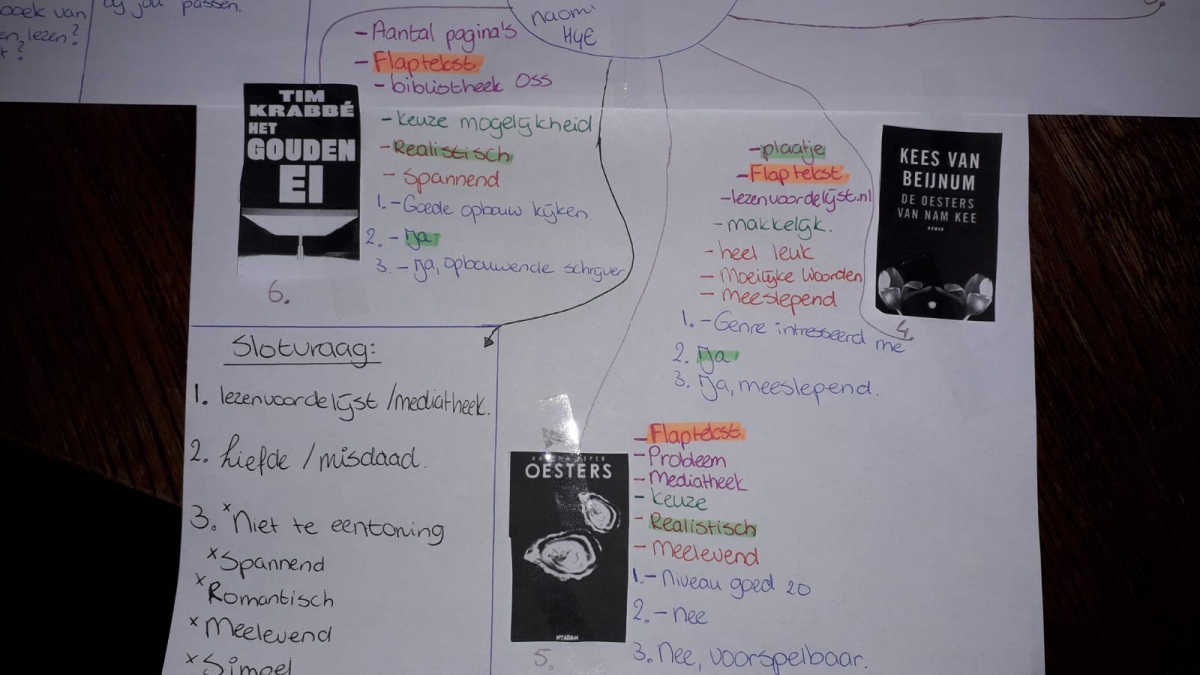 boek van
en, lezen?
bij jou passen.
naomi
H4E
- Aantal pagina's
- Flaptekst
- bibliotheek Oss
- Keuze mogelijkheid
- Realistisch
- Spannend
1. - Goede opbouw kijken
2. - Ja
3. - Ja, opbouwende schrijver
TIM
KRABBÉ
HET
GOUDEN
EI
6.
- plaatje
- Flaptekst
- lezenvoordelijst.nl
- makkelijk.
- heel leuk
- Moeilijke woorden
- meeslepend
1. - Genre intresseerd me
2. Ja
3. Ja, meeslepend.
KEES VAN
BEIJNUM
DE OESTERS
VAN NAM KEE
ROMAN
4.
Slotvraag:
1. lezenvoordelijst /mediatheek.
2. liefde /misdaad.
3. x Niet te eentoning
x Spannend
x Romantisch
x Meelevend
x Simpel
- Flaptekst
- Probleem
- Mediatheek
- Keuze
- Realistisch
- Meelevend
1. - Niveau goed zo
2. - nee
3. Nee, voorspelbaar.
OESTERS
5.